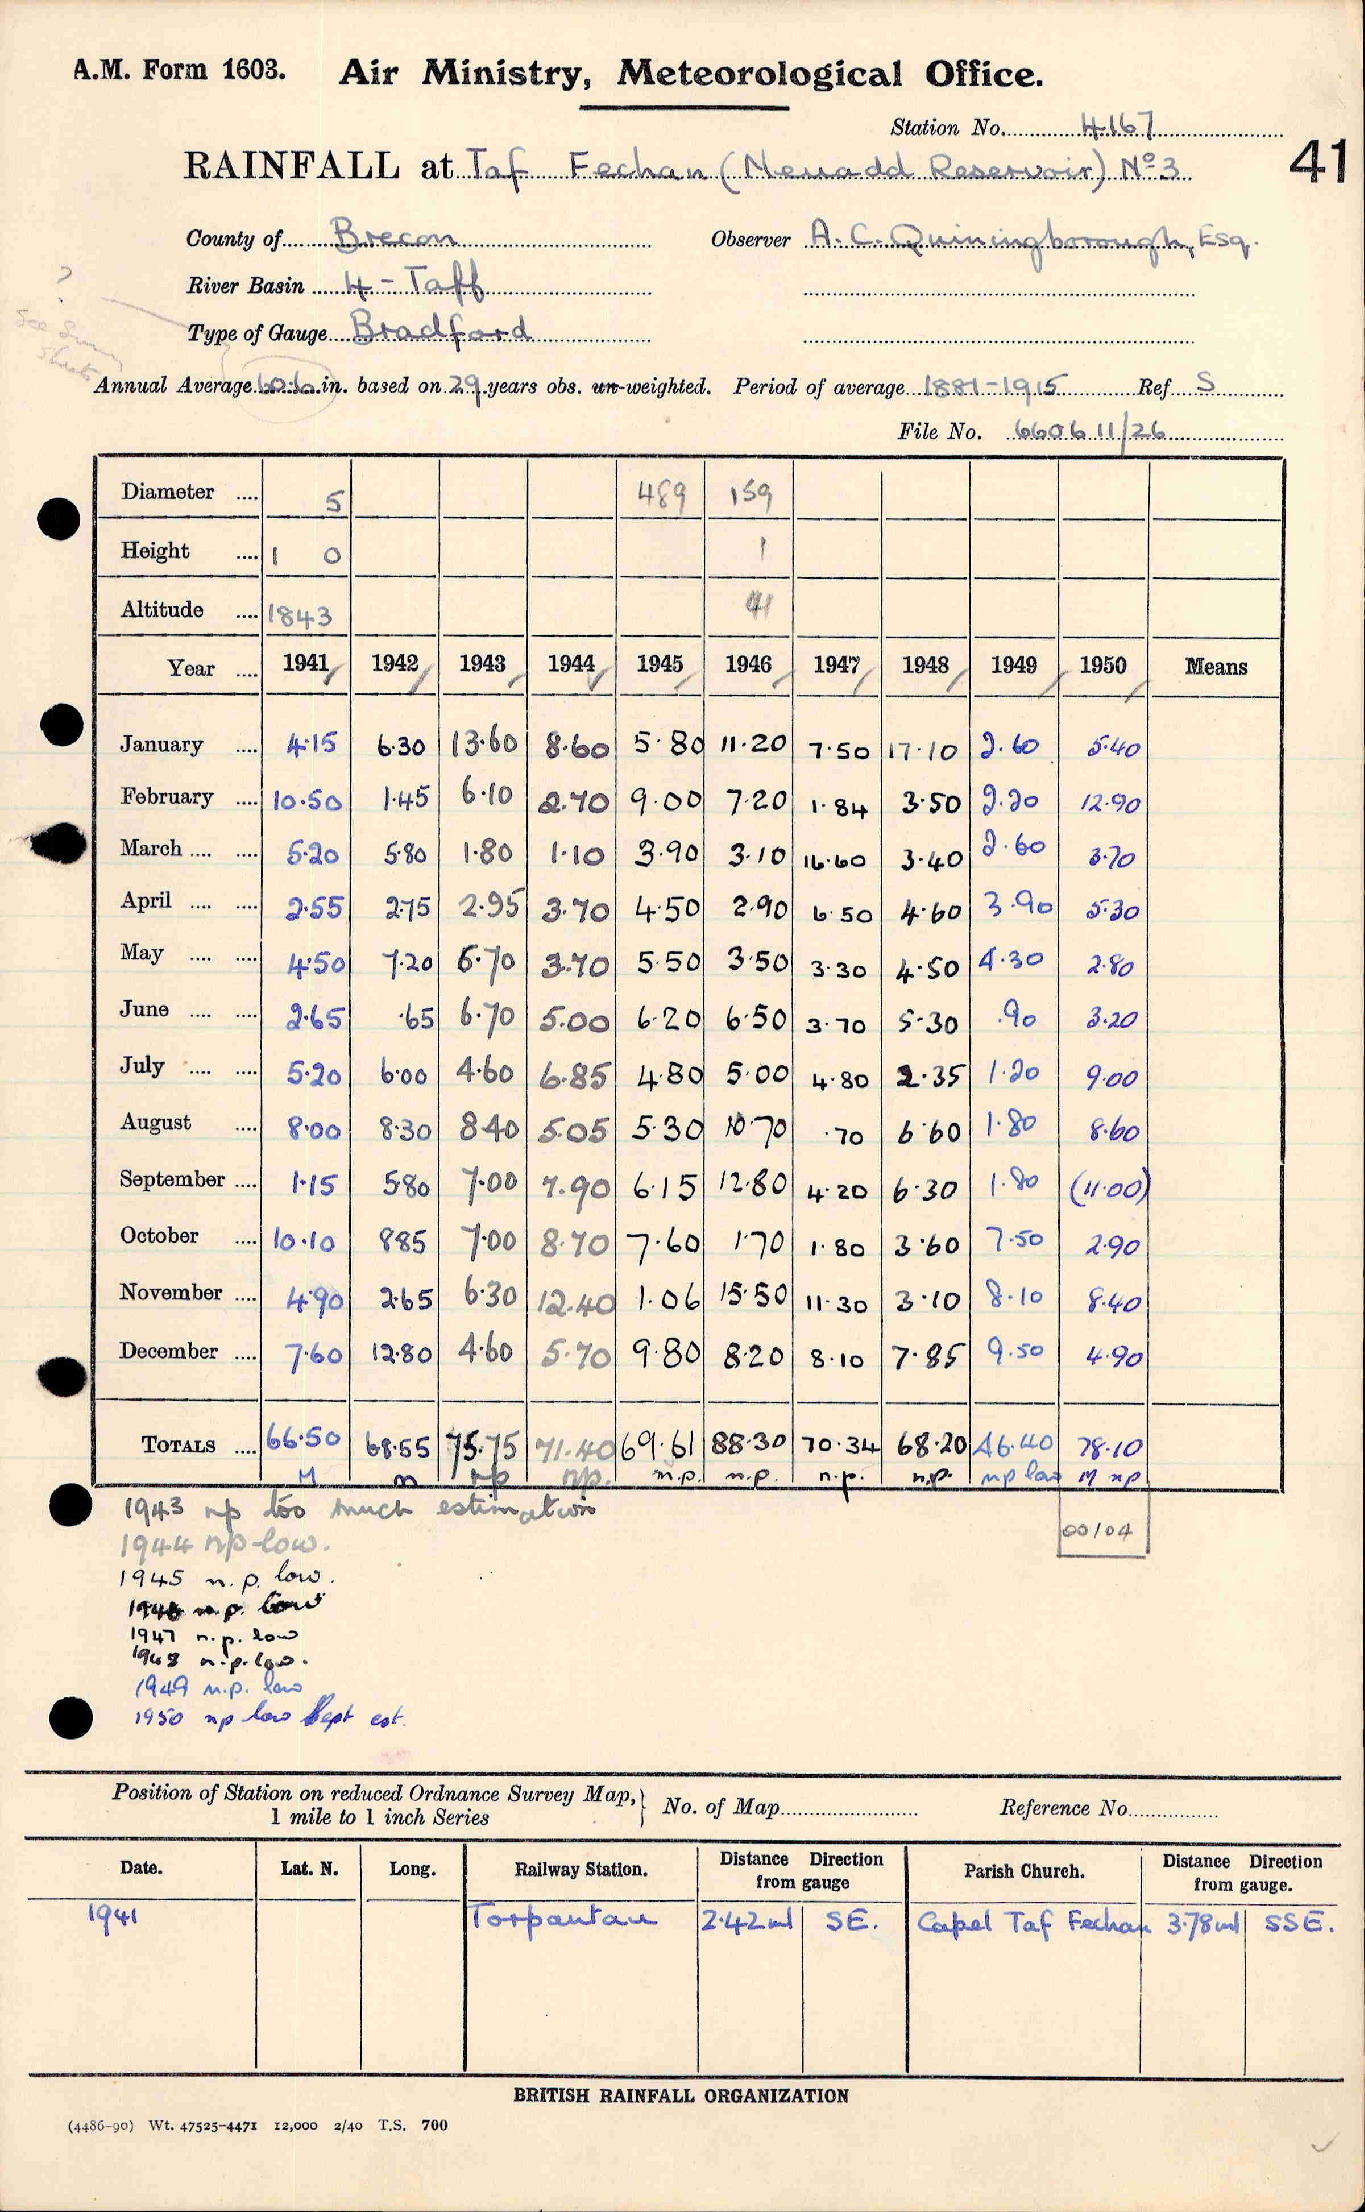 A.M. Form 1603. Air Ministry, Meteorological Office.
Station No. 4167
41
RAINFALL at Taf Fechan (Neuadd Reservoir) No 3
County of Brecon Observer A. C. Quiningborough, Esq.
River Basin 4 - Taff
?
Type of Gauge Bradford
See
Sheets
Annual Average in. based on 29 years obs. un-weighted. Period of average 1881-1915 Ref S
File No. 660611/26
Diameter .... 5 489 159
Height .... 1 0 1
Altitude .... 1843
Year .... 1941 1942 1943 1944 1945 1946 1947 1948 1949 1950 Means
January .... 4.15 6.30 13.60 8.60 5.80 11.20 7.50 17.10 2.60 5.40
February .... 10.50 1.45 6.10 2.70 9.00 7.20 1.84 3.50 2.20 12.90
March .... .... 5.20 5.80 1.80 1.10 3.90 3.10 16.60 3.40 2.60 3.70
April .... .... 2.55 2.75 2.95 3.70 4.50 2.90 6.50 4.60 3.90 5.30
May .... .... 4.50 7.20 6.70 3.70 5.50 3.50 3.30 4.50 4.30 2.80
June .... .... 2.65 .65 6.70 5.00 6.20 6.50 3.70 5.30 .90 3.20
July .... .... 5.20 6.00 4.60 6.85 4.80 5.00 4.80 2.35 1.20 9.00
August .... 8.00 8.30 8.40 5.05 5.30 10.70 .70 6.60 1.80 8.60
September .... 1.15 5.80 7.00 7.90 6.15 12.80 4.20 6.30 1.80 (11.00)
October .... 10.10 8.85 7.00 8.70 7.60 1.70 1.80 3.60 7.50 2.90
November .... 4.90 2.65 6.30 12.40 1.06 15.50 11.30 3.10 8.10 8.40
December .... 7.60 12.80 4.60 5.70 9.80 8.20 8.10 7.85 9.50 4.90
TOTALS .... 66.50 68.55 75.75 71.40 69.61 88.30 70.34 68.20 46.40 78.10
M m np np. m.p. n.p. n.p. n.p. np low M np
1943 np too much estimation
00/04
1944 np low.
1945 n.p. low.
1946 n.p. low
1947 n.p. low
1948 n.p. low.
1949 n.p. low
1950 np low Sept est.
Position of Station on reduced Ordnance Survey Map, 1 mile to 1 inch Series } No. of Map Reference No.
Date. Lat. N. Long. Railway Station. Distance from gauge Direction Parish Church. Distance from gauge. Direction
1941 Torpantau 2.42 ml SE. Capel Taf Fechan 3.78 ml SSE.
BRITISH RAINFALL ORGANIZATION
(4486-90) Wt. 47525-4471 12,000 2/40 T.S. 700